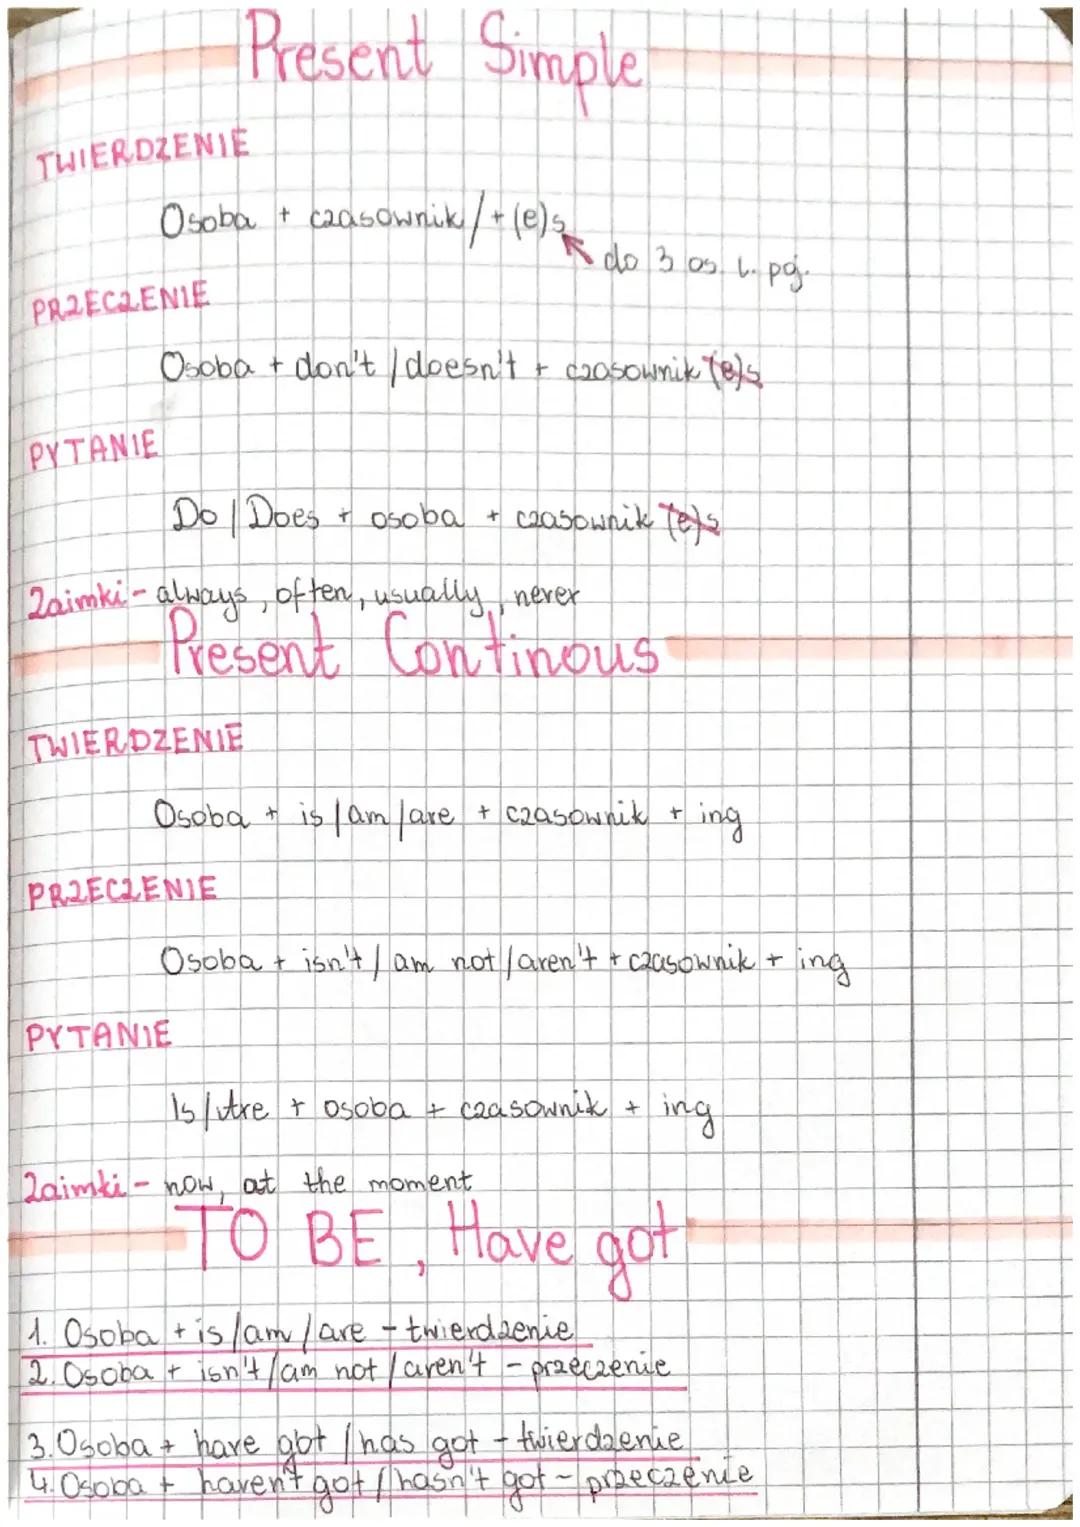 Present Simple
TWIERDZENIE
Osoba + czasownik/+(e)s
do 3 os l. poj.
PRZECZENIE
Osoba + don't / doesn't + czasownik (e)s
PYTANIE
Do / Does + osoba + czasownik (e)s
Zaimki - always, often, usually, never
Present Continous
TWIERDZENIE
Osoba + is / am / are + czasownik + ing
PRZECZENIE
Osoba + isn't / am not / aren't + czasownik + ing
PYTANIE
Is / Are + osoba + czasownik + ing
Zaimki - now, at the moment
TO BE, Have got
1. Osoba + is / am / are - twierdzenie
2. Osoba + isn't / am not / aren't - przeczenie
3. Osoba + have got / has got - twierdzenie
4. Osoba + haven't got / hasn't got - przeczenie